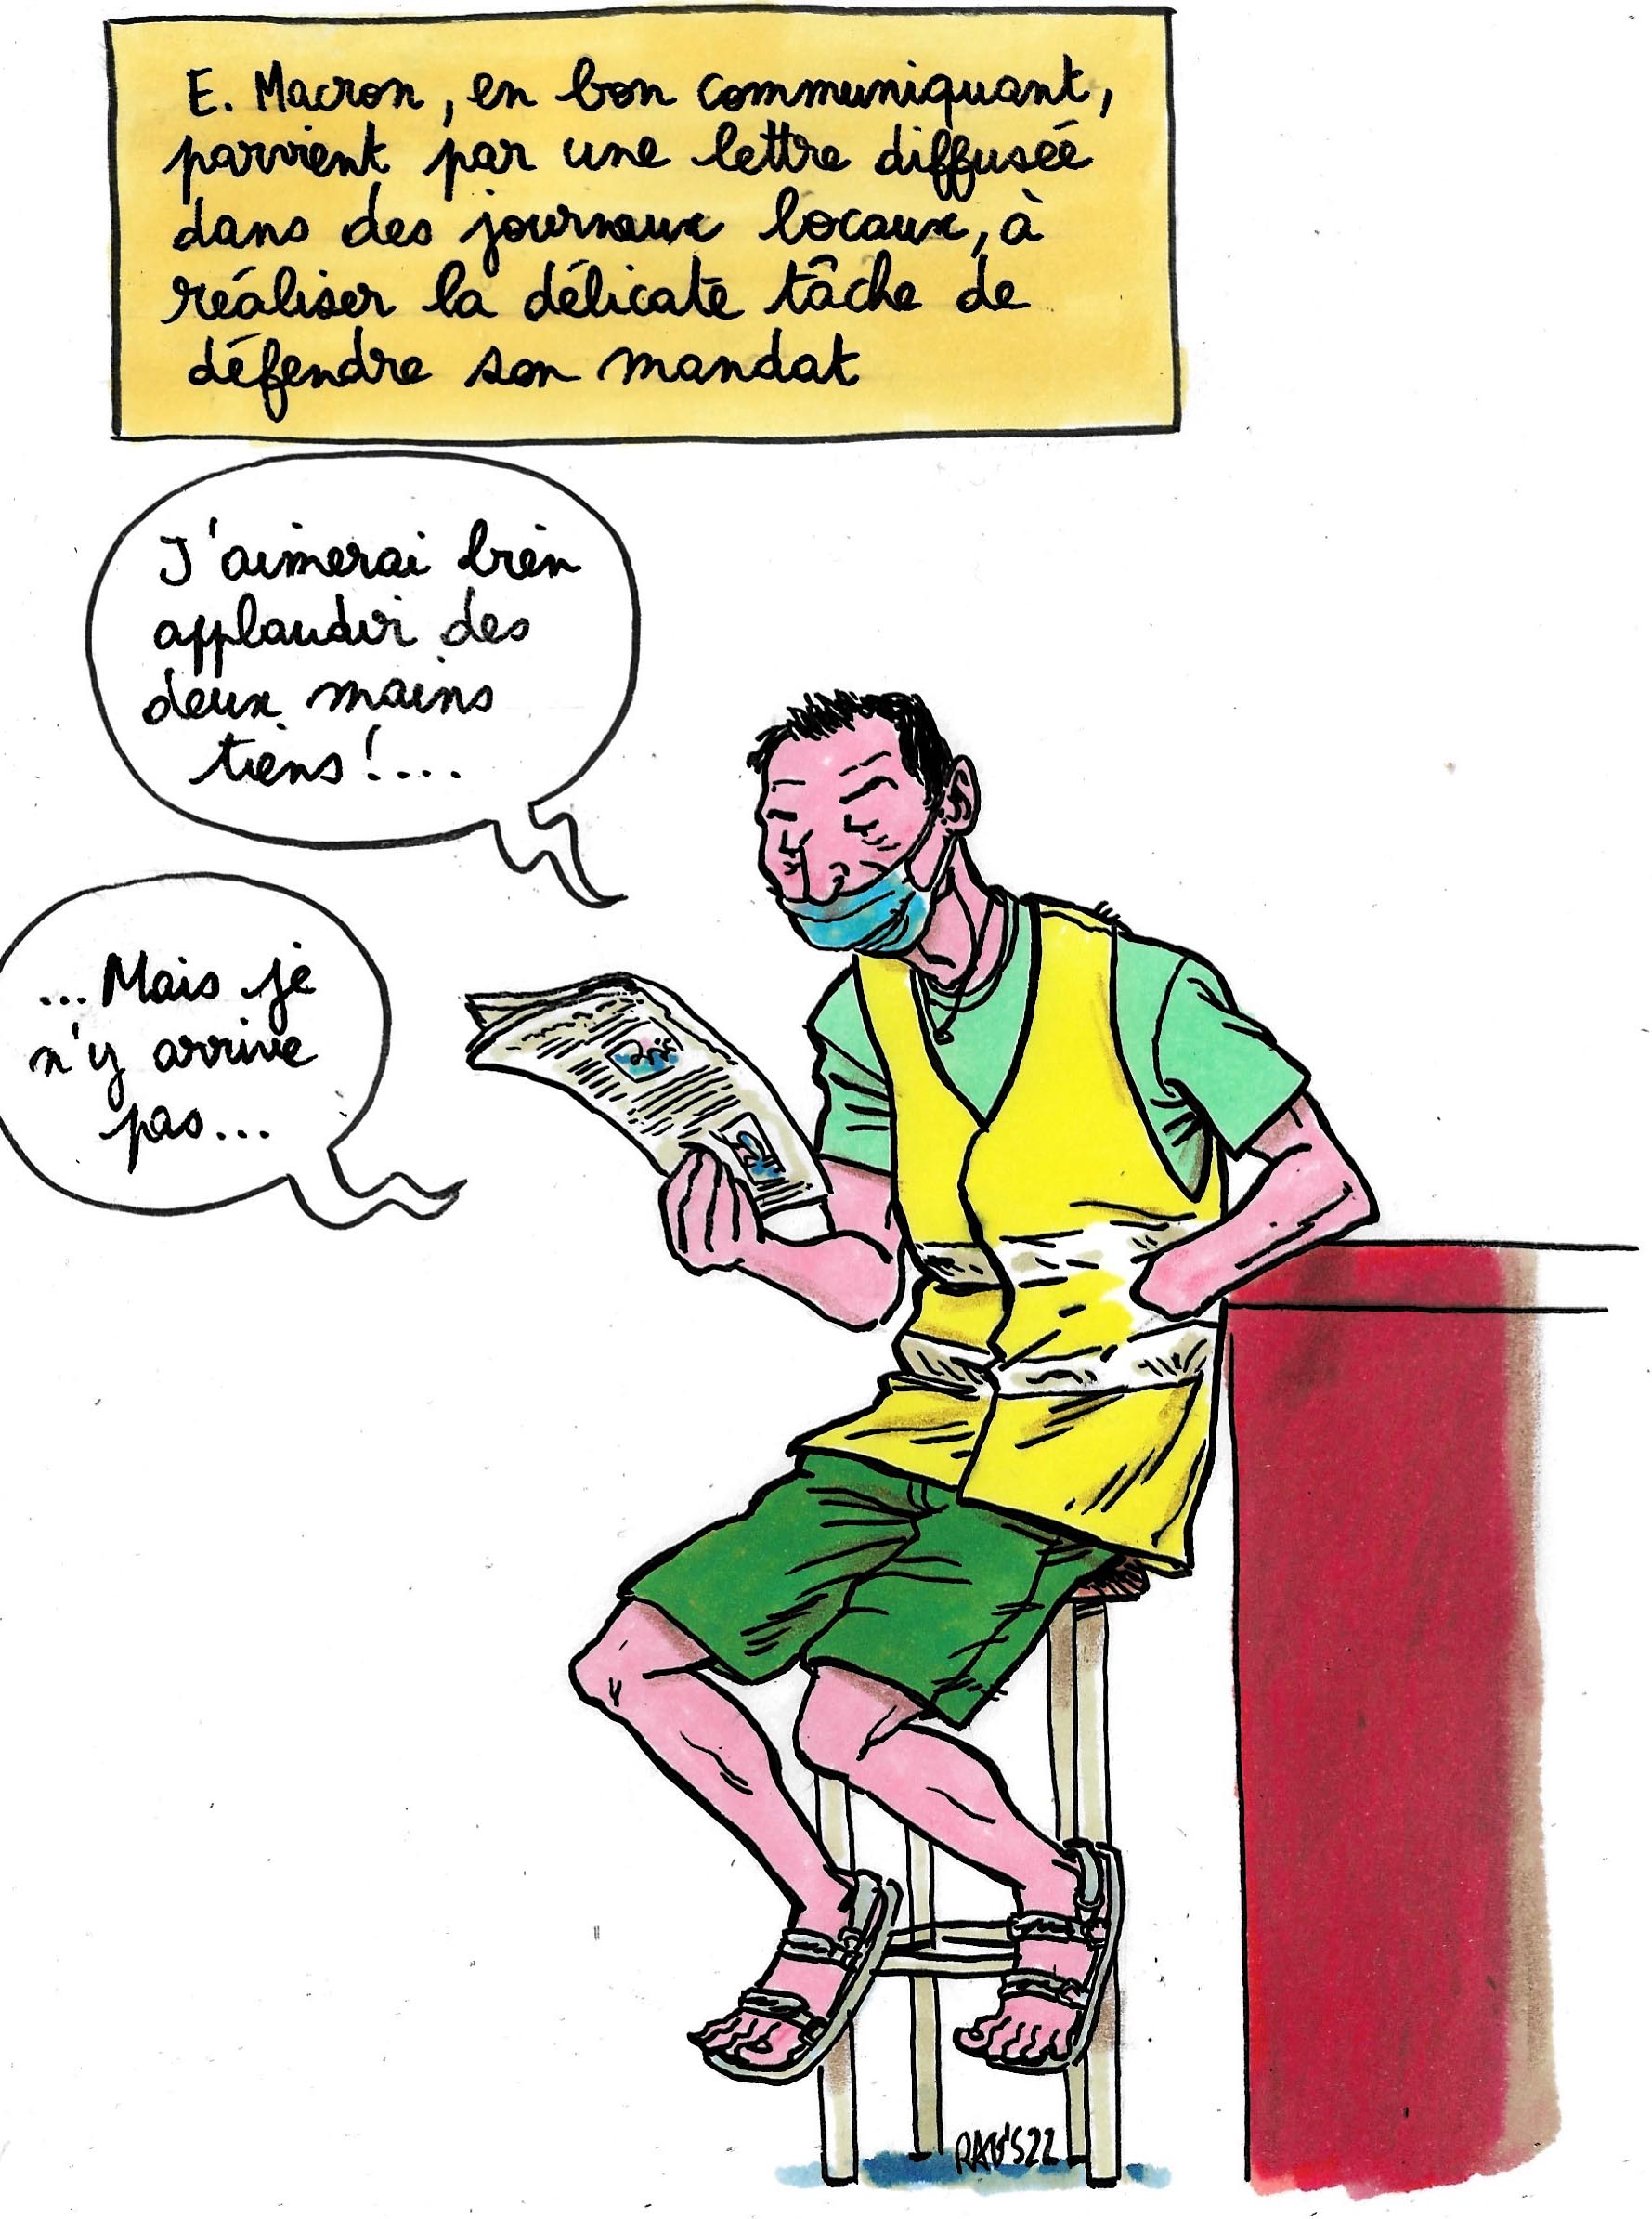 E. Macron, en bon communiquant,
parvient par une lettre diffusée
dans des journaux locaux, à
réaliser la délicate tâche de
défendre son mandat
J'aimerai bien
applaudir des
deux mains
tiens!....
...Mais je
n'y arrive
pas...
RAG'S22